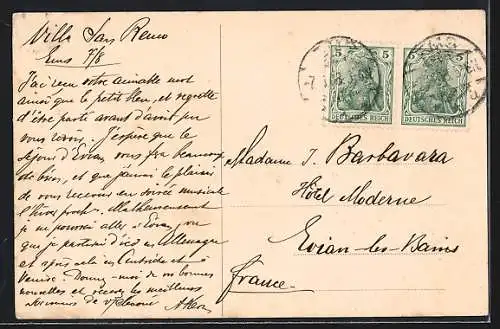 Villa San Remo
Ems 7/8
J'ai reçu votre aimable mot
ainsi que le petit bleu, et regrette
d'être parti avant d'avoir pu
vous revoir. J'espère que le
séjour d'Evian vous fera beaucoup
de bien, et que j'aurai le plaisir
de vous recevoir en soirée musicale
l'hiver proch. Malheureusement
je ne pourrai aller à Evian, vu
que je partirai d'ici en Allemagne
et après cela en et à
Venise. Donnez-moi de vos bonnes
nouvelles et recevez les meilleurs
souvenirs de
5 5 5 5
DEUTSCHES REICH DEUTSCHES REICH
Madame J. Barbavara
Hôtel Moderne
Evian-les-Bains
France.